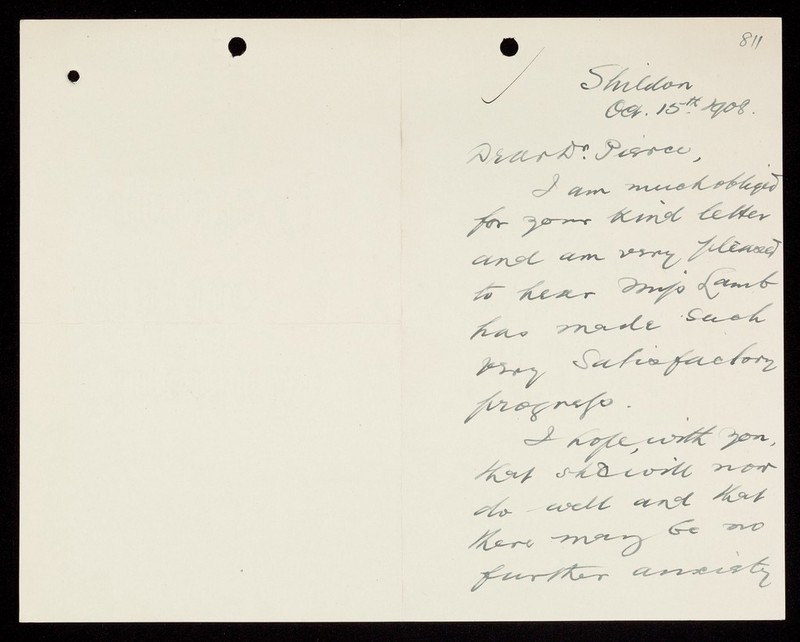 811
Shildon
Oct. 15th 1908.
Dear Dr. Pierce,
I am much obliged
for your kind letter
and am very pleased
to hear Miss Lamb
has made such
very satisfactory
progress.
I hope, with you,
that she will now
do well and that
there may be no
further anxiety